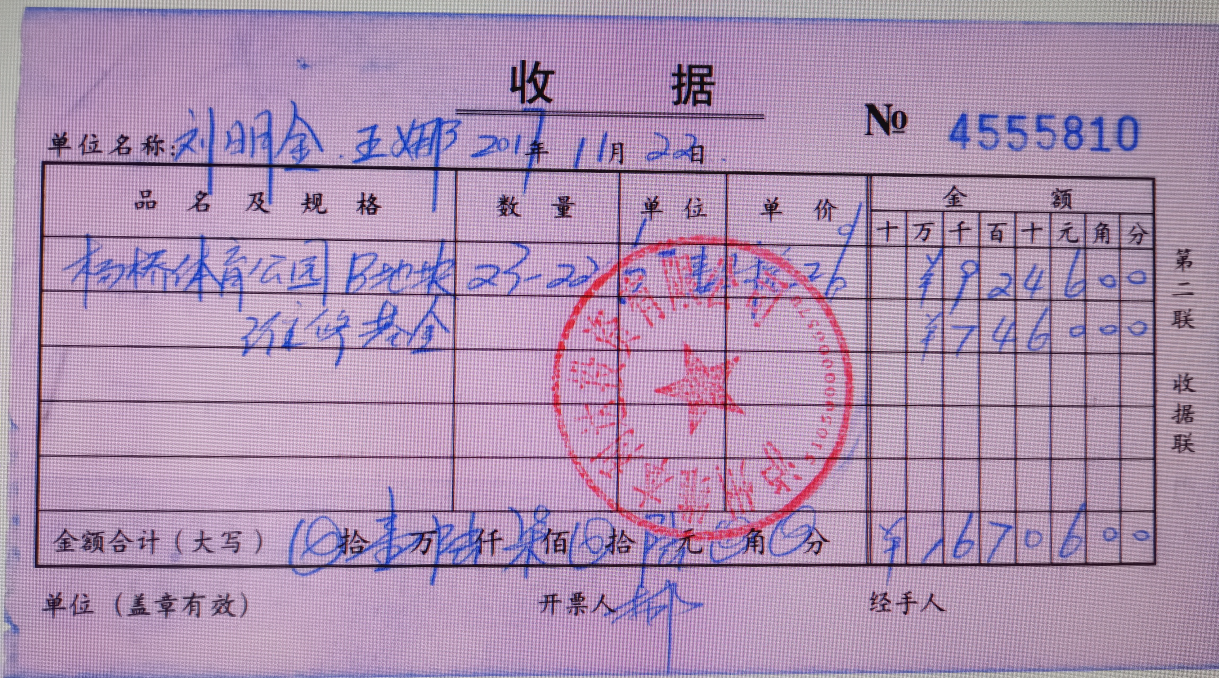 收 据
№ 4555810
单位名称:刘明金.王娜 2017年 11月 22日.
品名及规格 数量 单位 单价 金额
十 万 千 百 十 元 角 分
杨桥体育公园B地块 23-22 ¥ 9 2 4 6 0 0
修基金 ¥ 7 4 6 0 0 0
金额合计(大写) 拾壹万陆仟柒佰 拾陆元 角 分 ¥ 1 6 7 0 6 0 0
单位(盖章有效) 开票人 经手人
第二联 收据联